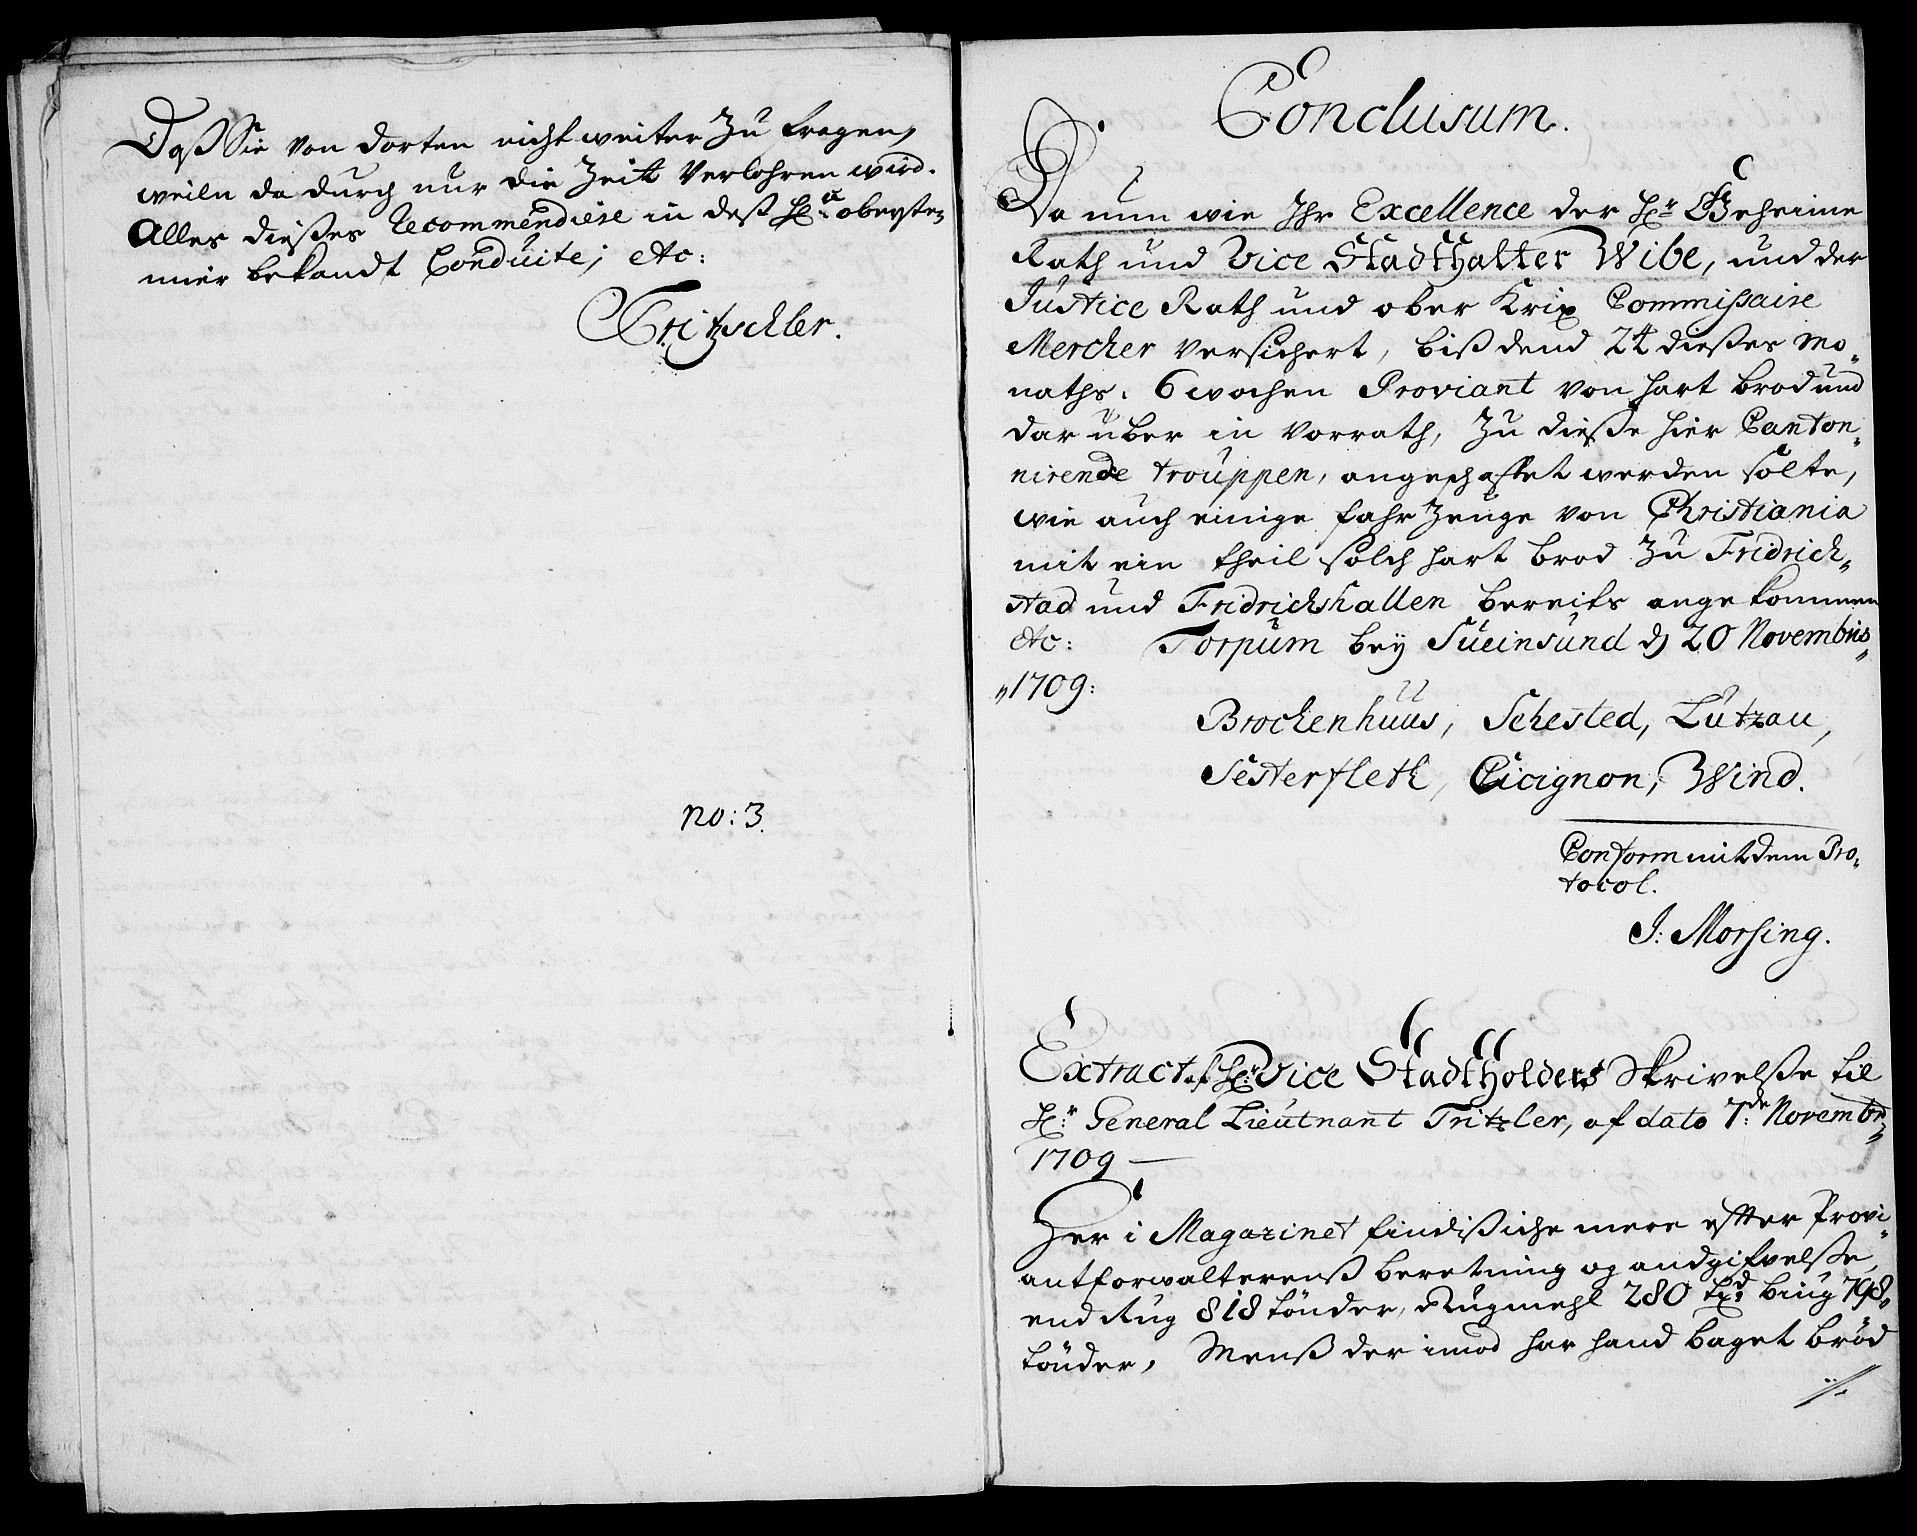 Daß Sie von dorten nicht weiter zu fragen,
weiln da durch nur die Zeit verlohren wird.
Alles dießes Recommendiere in deß Hr: obersten
mier bekandt Conduite; etc:
Tritzschler.
no: 3.
Conclusum.
Da nun wie Ihr Excellence der Hr: Geheime
Rath und Vice Stadthalter Wibe, und der
Justice Rath und ober Krix Commissaire
Mercker versichert, biß dend 24 dießes mo„
naths. 6 wochen Proviant von hart brod und
darüber in Vorrath, zu dieße hier Canton„
nirende trouppen, angeschaffet werden solte,
wie auch einige fahr Zeuge von Christiania
mit ein theil solch hart brod zu Fridrich„
stad und Fridrichshallen bereits angekommen
etc: Torpum bey Sueinsund d 20 Novembris
„1709:
Brockenhuus, Sehested, Lützau,
Sesterfleth, Cicignon, Wind.
Conform mit dem Pro„
tocol.
J: Morsing.
Extract af Hr: Vice Stadtholders Skrivelße til
Hr: General Lieutnant Tritzler, af dato 7de Novembr:
1709 —
Her i Magazinet findiß iche mere efter Provi„
antforwalterenß beretning og andgifvelße,
end Rug 818 tönder, Rugmehl 280 Bing 798„
tönder, Menß der imod har hand baget bröd